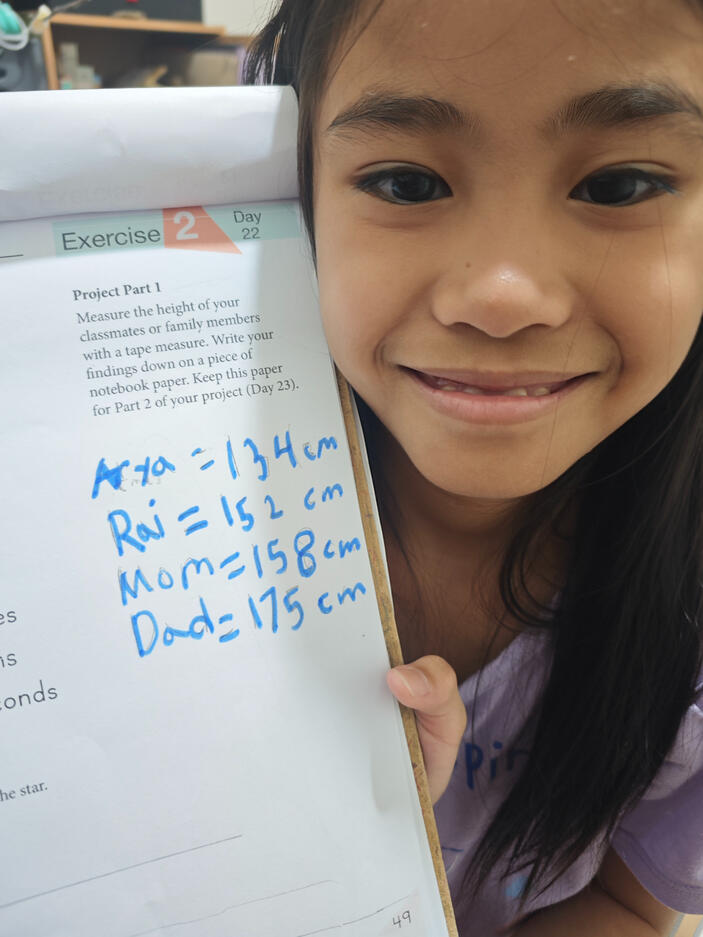 Exercise 2 Day 22
Project Part 1
Measure the height of your
classmates or family members
with a tape measure. Write your
findings down on a piece of
notebook paper. Keep this paper
for Part 2 of your project (Day 23).
Arya = 134 cm
Rai = 152 cm
Mom = 158 cm
Dad = 175 cm
es
ns
conds
he star.
49
pin